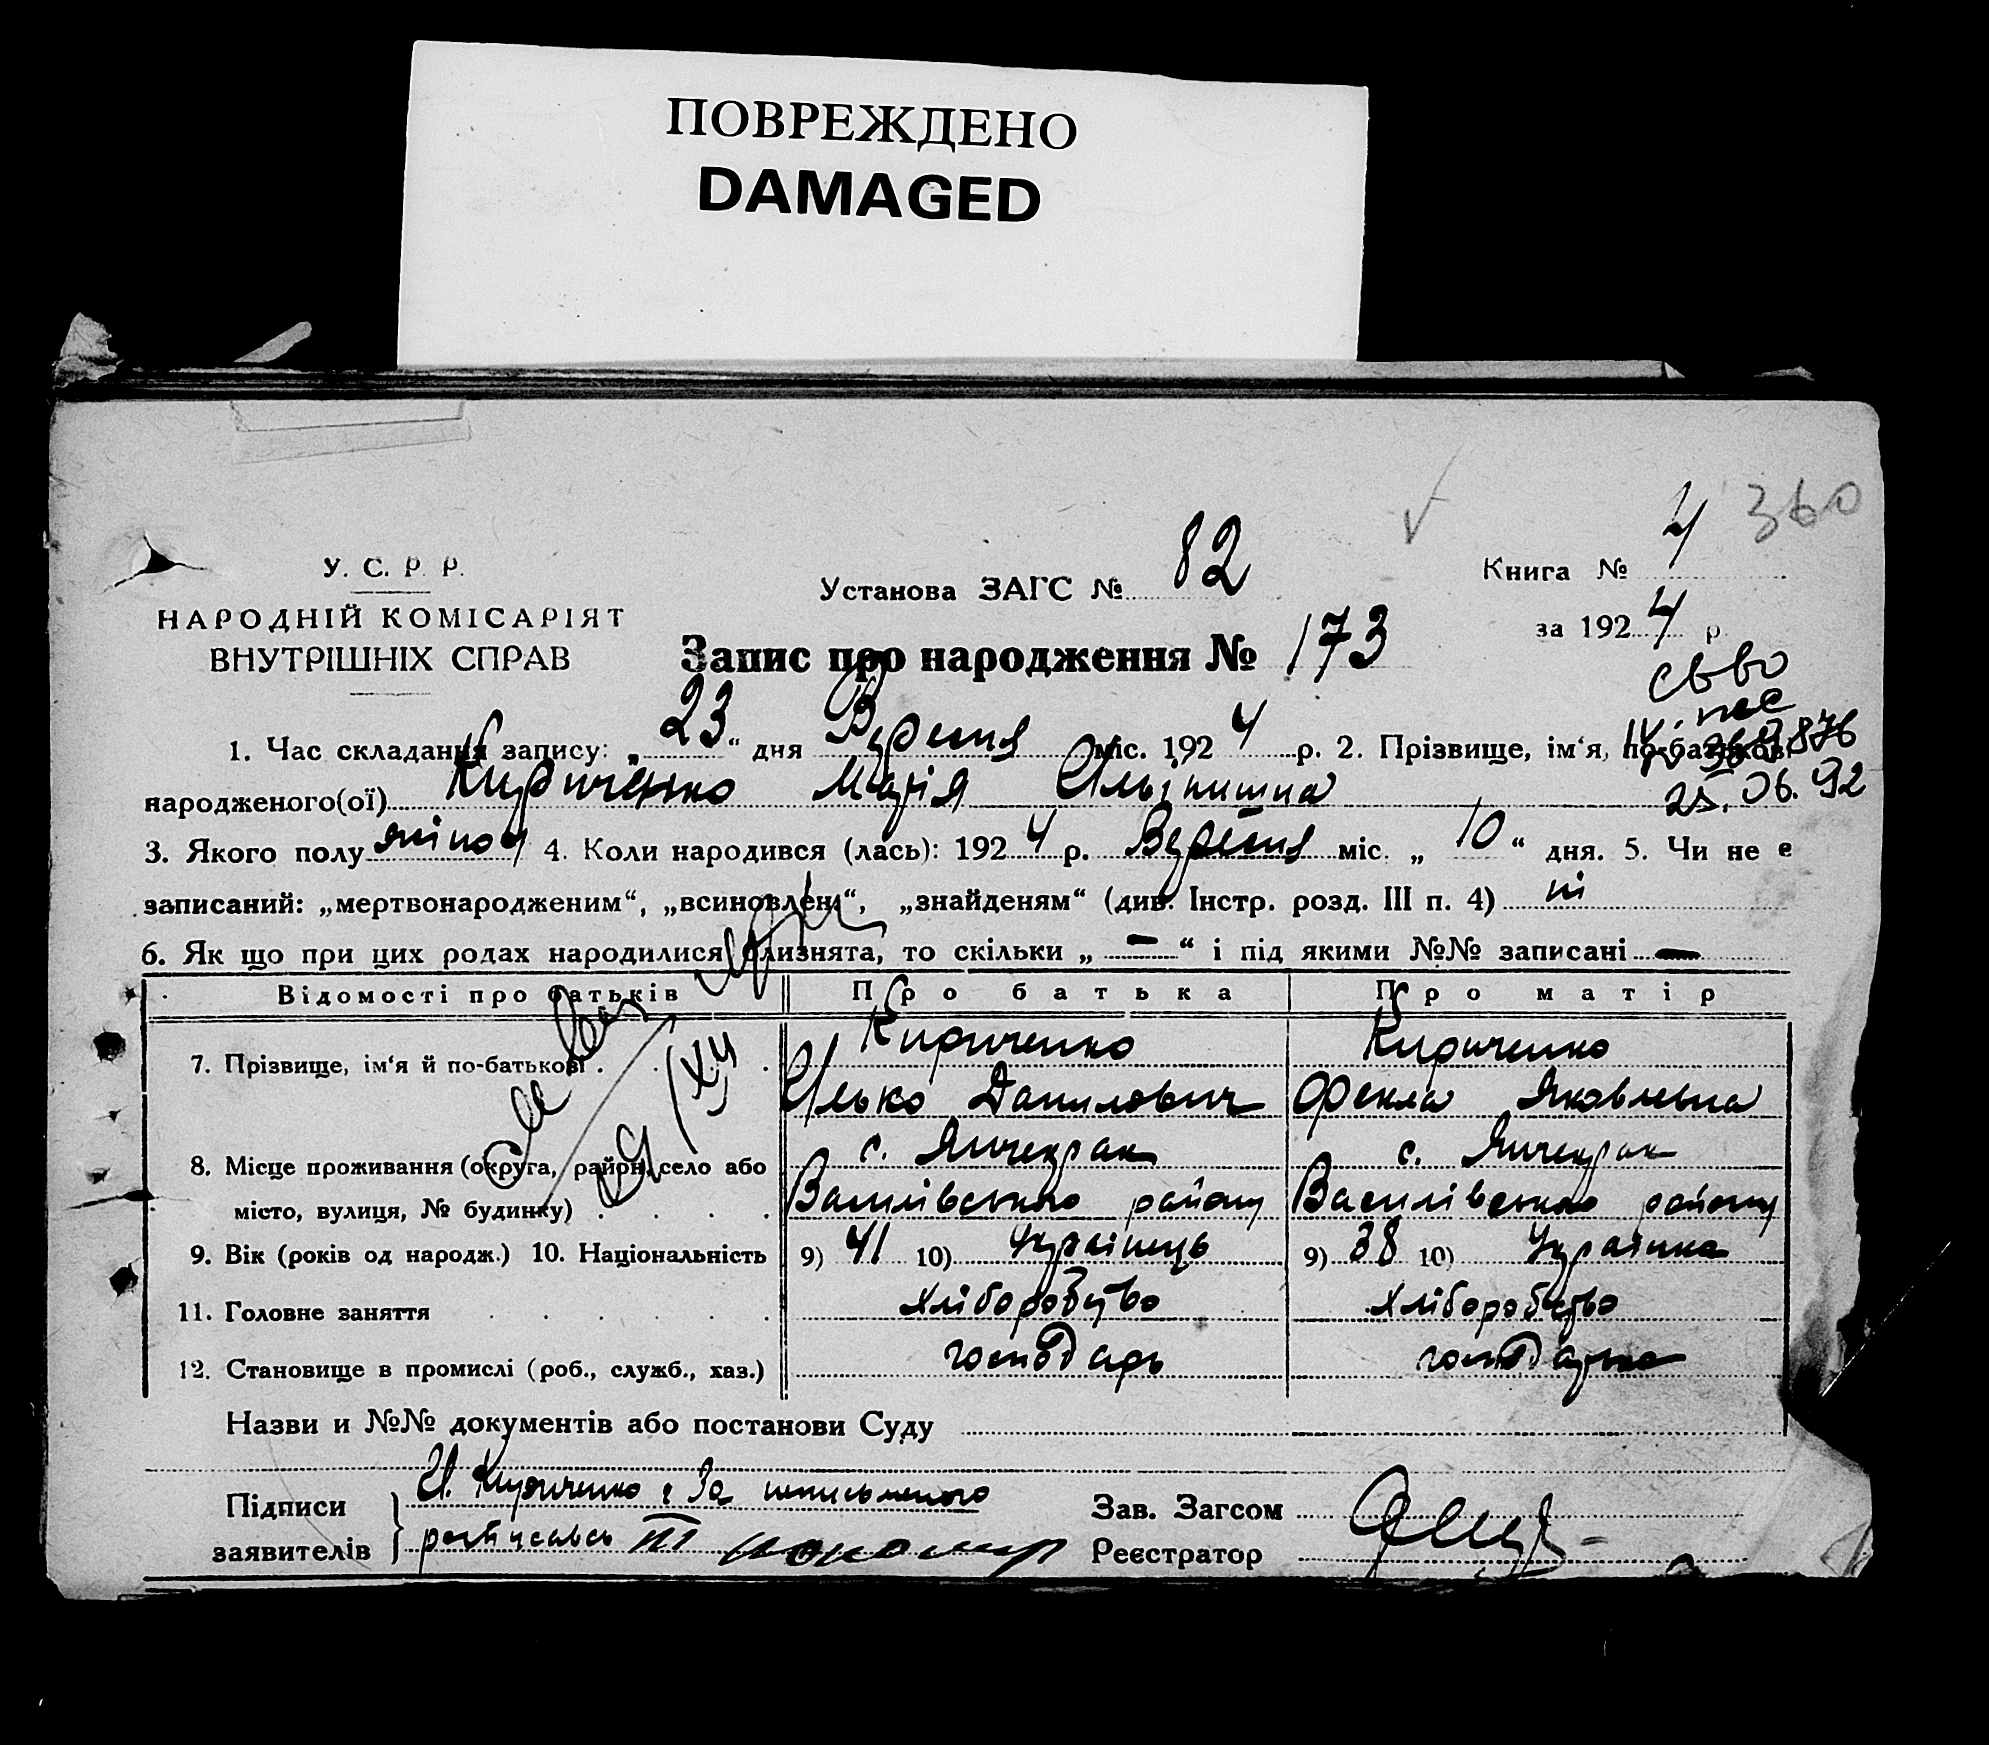 ПОВРЕЖДЕНО
DAMAGED
360
У. С. Р. Р.
НАРОДНІЙ КОМІСАРІЯТ
ВНУТРІШНІХ СПРАВ
Установа ЗАГС № 82
Книга № 4
за 1924 р.
Запис про народження № 173
св во
25.06.92
1. Час складання запису: „23“ дня Вересня міс. 1924 р. 2. Прізвище, ім‘я, по-батькові
народженого(ої) Кириченко Марія Ільінишна
3. Якого полу жіноч 4. Коли народився (лась): 1924 р. Вересня міс. „10“ дня. 5. Чи не є
записаний: „мертвонародженим“, „всиновлен“, „знайденям“ (див. Інстр. розд. III п. 4) ні
6. Як що при цих родах народилися близнята, то скільки „—“ і під якими №№ записані —
Відомості про батьків Про батька Про матір
7. Прізвище, ім‘я й по-батькові Кириченко Кириченко
Ілько Данилович Фекла Яковлевна
8. Місце проживання (округа, район, село або с. Янчекрак с. Янчекрак
місто, вулиця, № будинку) Василівського району Василівського району
9. Вік (років од народж.) 10. Національність 9) 41 10) Українець 9) 38 10) Українка
11. Головне заняття Хліборобство Хліборобство
12. Становище в промислі (роб., служб., хаз.) господарь господарка
Назви и №№ документів або постанови Суду
Підписи заявителів И. Кириченко За неписьменого
росписавсь
Зав. Загсом
Реєстратор